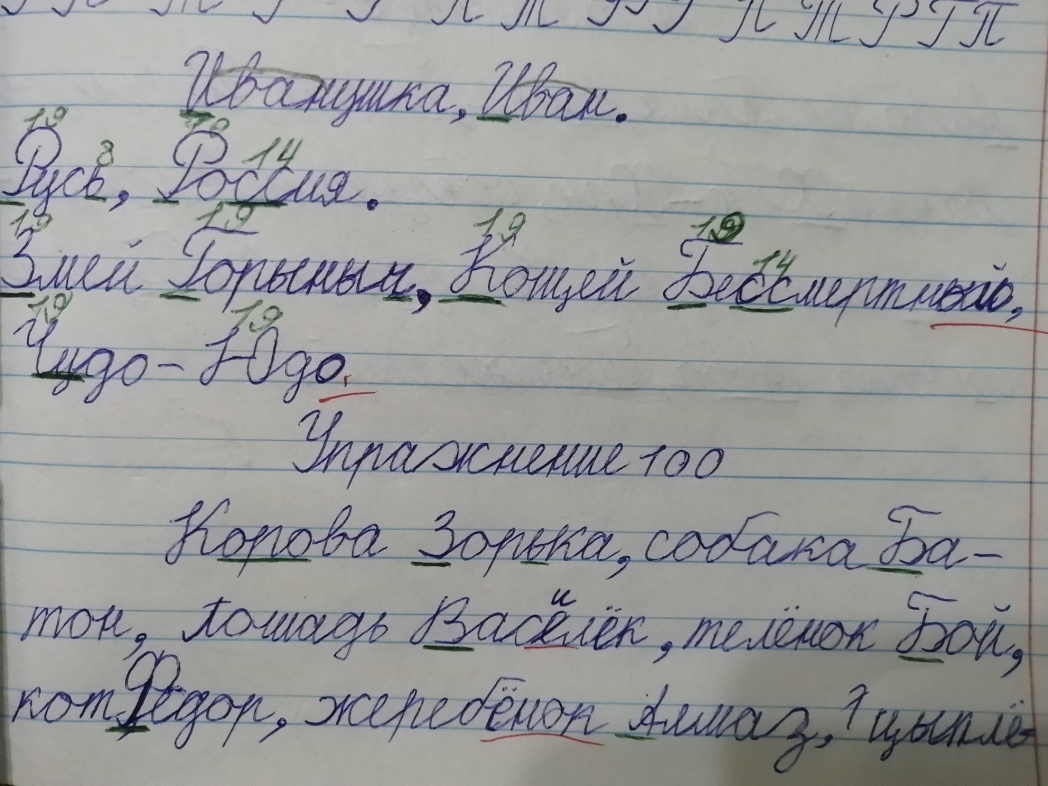 Г П Т Р Г П Т Р Г П Т Р Г П
Иванушка, Иван.
19 19 14
8
Русь, Россия.
19 19 19 19 14
Змей Горыныч, Кощей Бессмертный,
19 19
Чудо-Юдо.
Упражнение 100
Корова Зорька, собака Ба-
тон, лошадь Васёлёк, телёнок Бой,
и
кот Фёдор, жеребёнок Алмаз, ? цыплё-